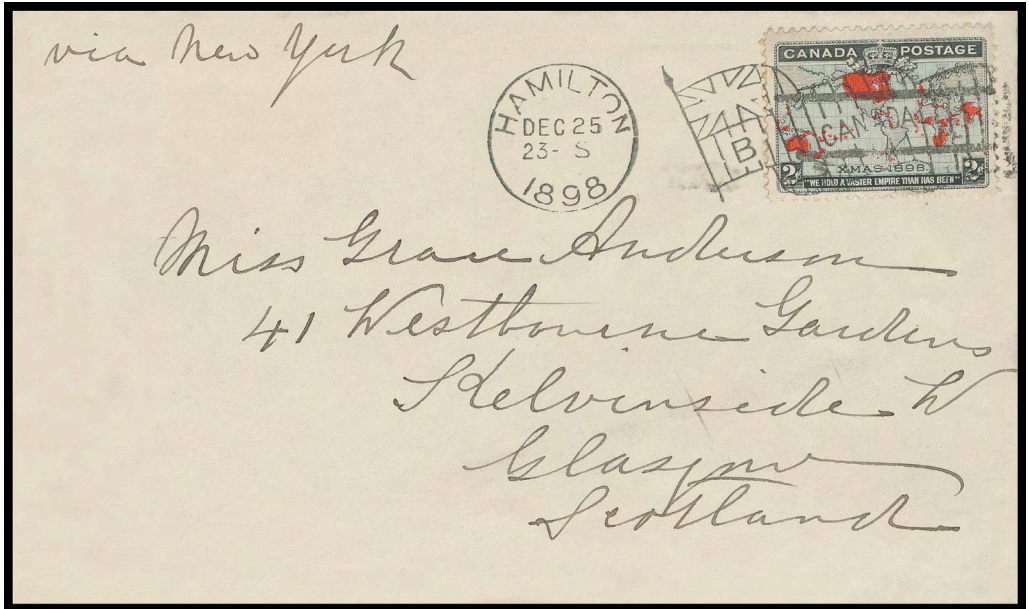 via New York
HAMILTON
DEC 25
23- S
1898
B
CANADA
CANADA POSTAGE
XMAS 1898
2¢ 2¢
"WE HOLD A VASTER EMPIRE THAN HAS BEEN"
Miss Grace Anderson
41 Westbourne Gardens
Kelvinside W
Glasgow
Scotland